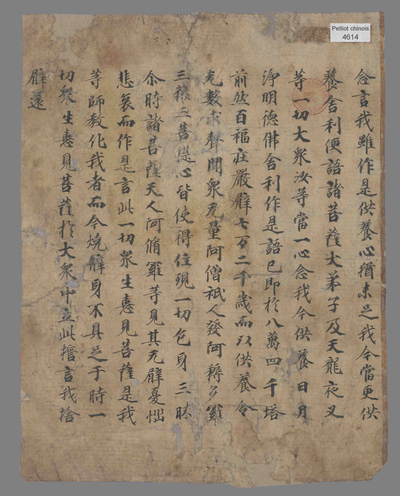 Pelliot chinois
4614
念言我雖作是供養心猶未足我今當更供
養舍利便語諸菩薩大弟子及天龍夜叉
等一切大眾汝等當一心念我今供養日月
淨明德佛舍利作是語已即於八萬四千塔
前然百福莊嚴臂七万二千歲而以供養令
无數求聲聞眾无量阿僧祇人發阿耨多羅
三藐三菩提心皆使得住現一切色身三昧
尒時諸菩薩天人阿脩羅等見其无臂憂惱
悲哀而作是言此一切眾生憙見菩薩是我
等師教化我者而今燒臂身不具足于時一
切眾生憙見菩薩於大眾中立此誓言我捨
臂還